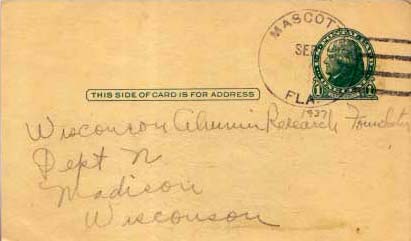 MASCOTT
SE
FLA
1937
1 1
THIS SIDE OF CARD IS FOR ADDRESS
Wisconson Alumni Research Foundation
Dept N
Madison
Wisconson